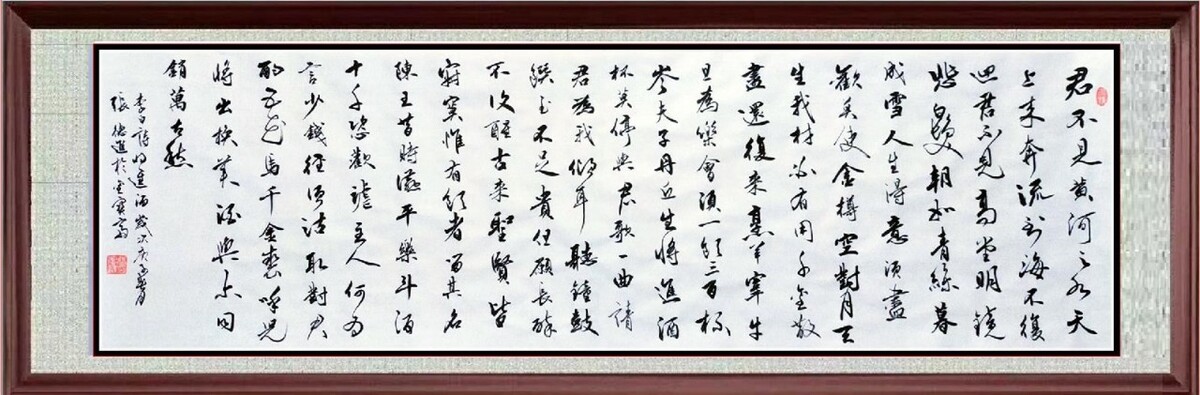 君不見黃河之水天
上來奔流到海不復
迴君不見高堂明鏡
悲白髮朝如青絲暮
成雪人生得意須盡
歡莫使金樽空對月天
生我材必有用千金散
盡還復來烹羊宰牛
且為樂會須一飲三百杯
岑夫子丹丘生將進酒
杯莫停與君歌一曲請
君為我傾耳聽鐘鼓
饌玉不足貴但願長醉
不復醒古來聖賢皆
寂寞惟有飲者留其名
陳王昔時讌平樂斗酒
十千恣歡謔主人何為
言少錢徑須沽取對君
酌五花馬千金裘呼兒
將出換美酒與爾同
銷萬古愁
李白詩將進酒歲次庚子
張德進於